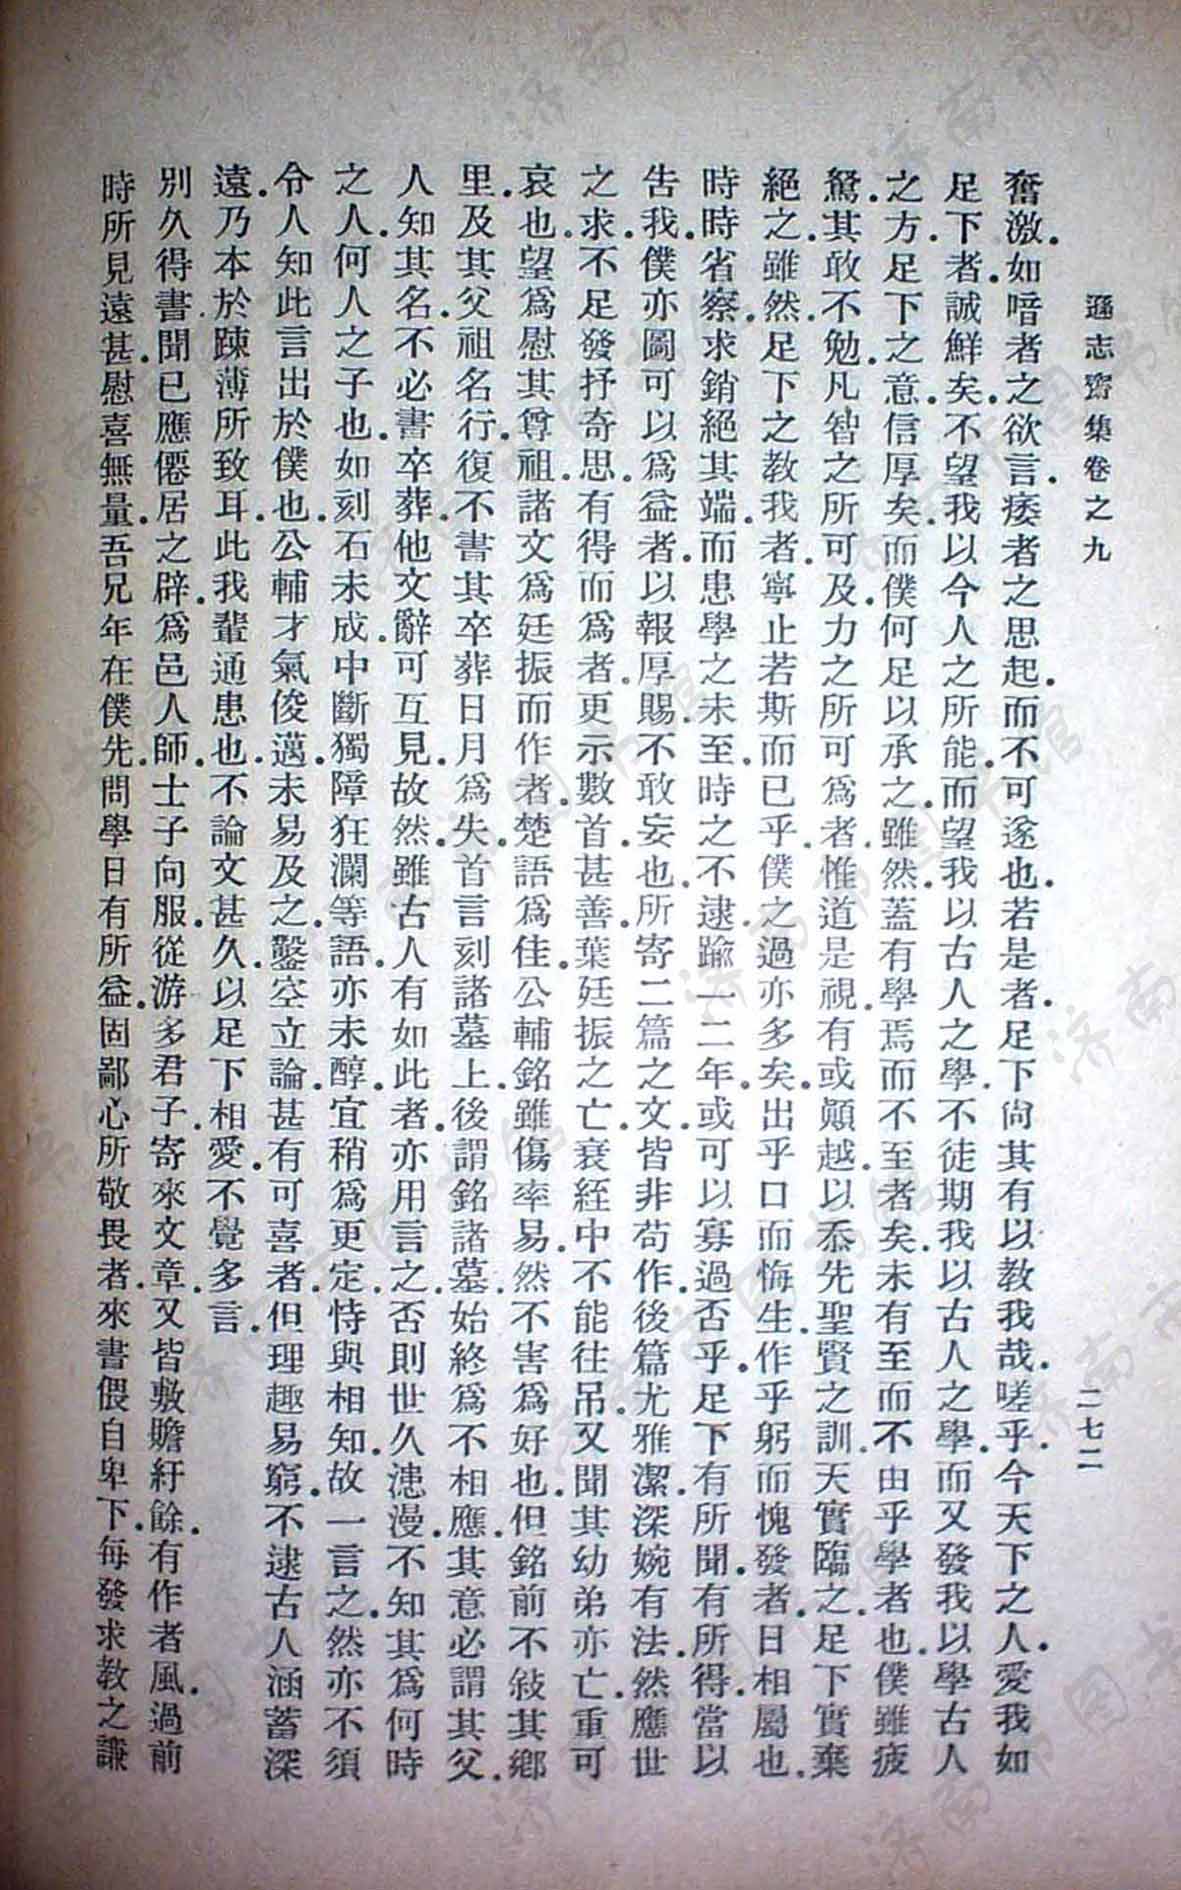 遜志齋集卷之九
二七二
奮激.如喑者之欲言.痿者之思起.而不可遂也.若是者.足下尙其有以教我哉.嗟乎.今天下之人.愛我如
足下者.誠鮮矣.不望我以今人之所能.而望我以古人之學.不徒期我以古人之學.而又發我以學古人
之方.足下之意.信厚矣.而僕何足以承之.雖然.蓋有學焉而不至者矣.未有至而不由乎學者也.僕雖疲
駑.其敢不勉.凡智之所可及.力之所可爲者.惟道是視.有或顚越.以忝先聖賢之訓.天實臨之.足下實棄
絕之.雖然.足下之教我者.寧止若斯而已乎.僕之過亦多矣.出乎口而悔生.作乎躬而愧發者.日相屬也.
時時省察.求銷絕其端.而患學之未至.時之不逮.踰一二年.或可以寡過否乎.足下有所聞.有所得.當以
告我.僕亦圖可以爲益者.以報厚賜.不敢妄也.所寄二篇之文.皆非苟作.後篇尤雅潔深婉有法.然應世
之求.不足發抒奇思.有得而爲者.更示數首甚善.葉廷振之亡.衰絰中不能往吊.又聞其幼弟亦亡.重可
哀也.望爲慰其尊祖.諸文爲廷振而作者.楚語爲佳.公輔銘雖傷率易.然不害爲好也.但銘前不敍其鄉
里.及其父祖名行.復不書其卒葬日月爲失.首言刻諸墓上.後謂銘諸墓.始終爲不相應.其意必謂其父.
人知其名.不必書.卒葬.他文辭可互見.故然.雖古人有如此者.亦用言之.否則世久漶漫.不知其爲何時
之人.何人之子也.如刻石未成.中斷獨障狂瀾等語.亦未醇.宜稍爲更定.恃與相知.故一言之.然亦不須
令人知此言出於僕也.公輔才氣俊邁.未易及之.鑿空立論.甚有可喜者.但理趣易窮.不逮古人涵蓄深
遠.乃本於踈薄所致耳.此我輩通患也.不論文甚久.以足下相愛.不覺多言.
別久得書.聞已應僊居之辟.爲邑人師.士子向服.從游多君子.寄來文章.又皆敷贍紆餘.有作者風.過前
時所見遠甚.慰喜無量.吾兄年在僕先.問學日有所益.固鄙心所敬畏者.來書偎自卑下.每發求教之謙